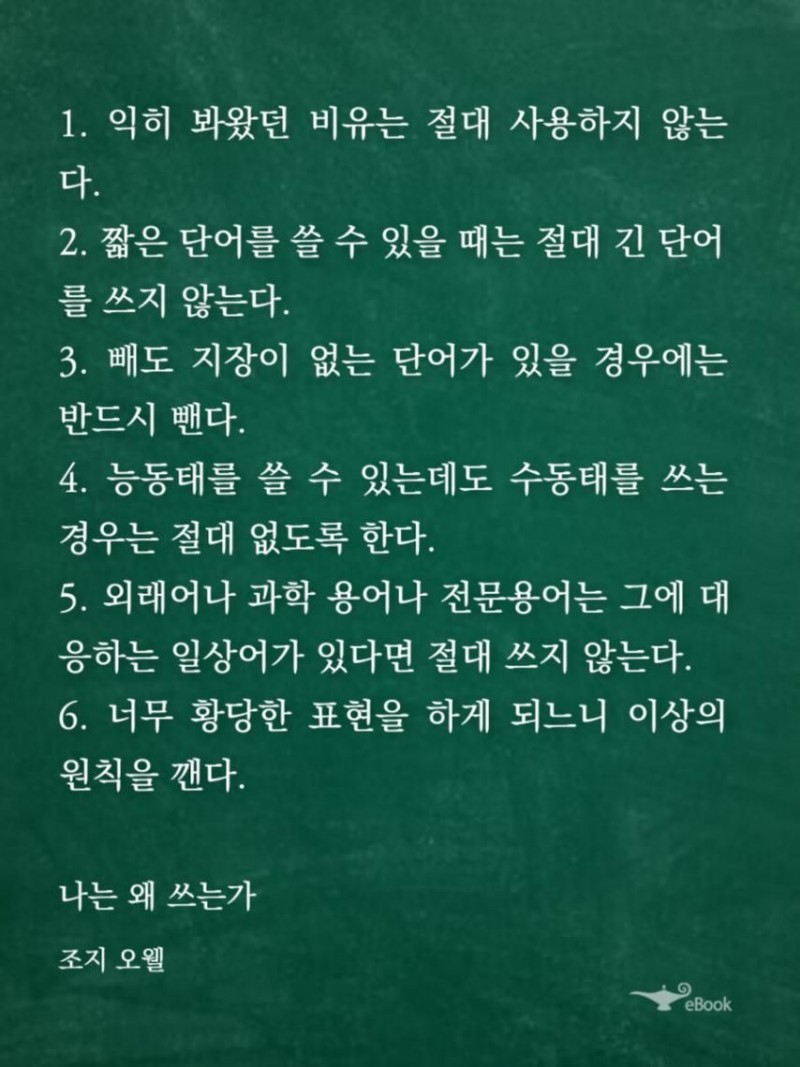 1. 익히 봐왔던 비유는 절대 사용하지 않는
다.
2. 짧은 단어를 쓸 수 있을 때는 절대 긴 단어
를 쓰지 않는다.
3. 빼도 지장이 없는 단어가 있을 경우에는
반드시 뺀다.
4. 능동태를 쓸 수 있는데도 수동태를 쓰는
경우는 절대 없도록 한다.
5. 외래어나 과학 용어나 전문용어는 그에 대
응하는 일상어가 있다면 절대 쓰지 않는다.
6. 너무 황당한 표현을 하게 되느니 이상의
원칙을 깬다.
나는 왜 쓰는가
조지 오웰
eBook